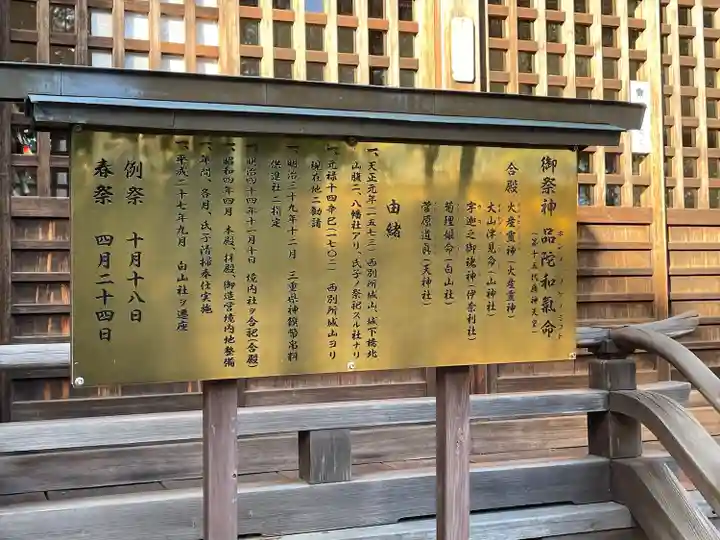 御祭神 品陀和氣命
ホンダワケノミコト
(第十五代應神天皇)
合殿 火産霊神(火産霊神)
大山津見命(山神社)
宇迦之御魂神(伊奈利社)
菊理媛命(白山社)
菅原道真(天神社)
由緒
一、天正元年(一五七三)西別所城山、城下橋北
山腹ニ、八幡社アリ、氏子ノ祭祀スル社ナリ
一、元禄十四辛巳(一七〇二)西別所城山ヨリ
現在地ニ勧請
一、明治三十九年十二月 三重県神饌幣帛料
供進社ニ指定
一、明治四十四年十一月十日 境内社ヲ合祀(合殿)
一、昭和四年四月 本殿、拝殿、御造営境内地整備
一、年間、各月、氏子清掃奉仕実施
一、平成二十七年九月 白山社ヲ遷座
例祭 十月十八日
春祭 四月二十四日